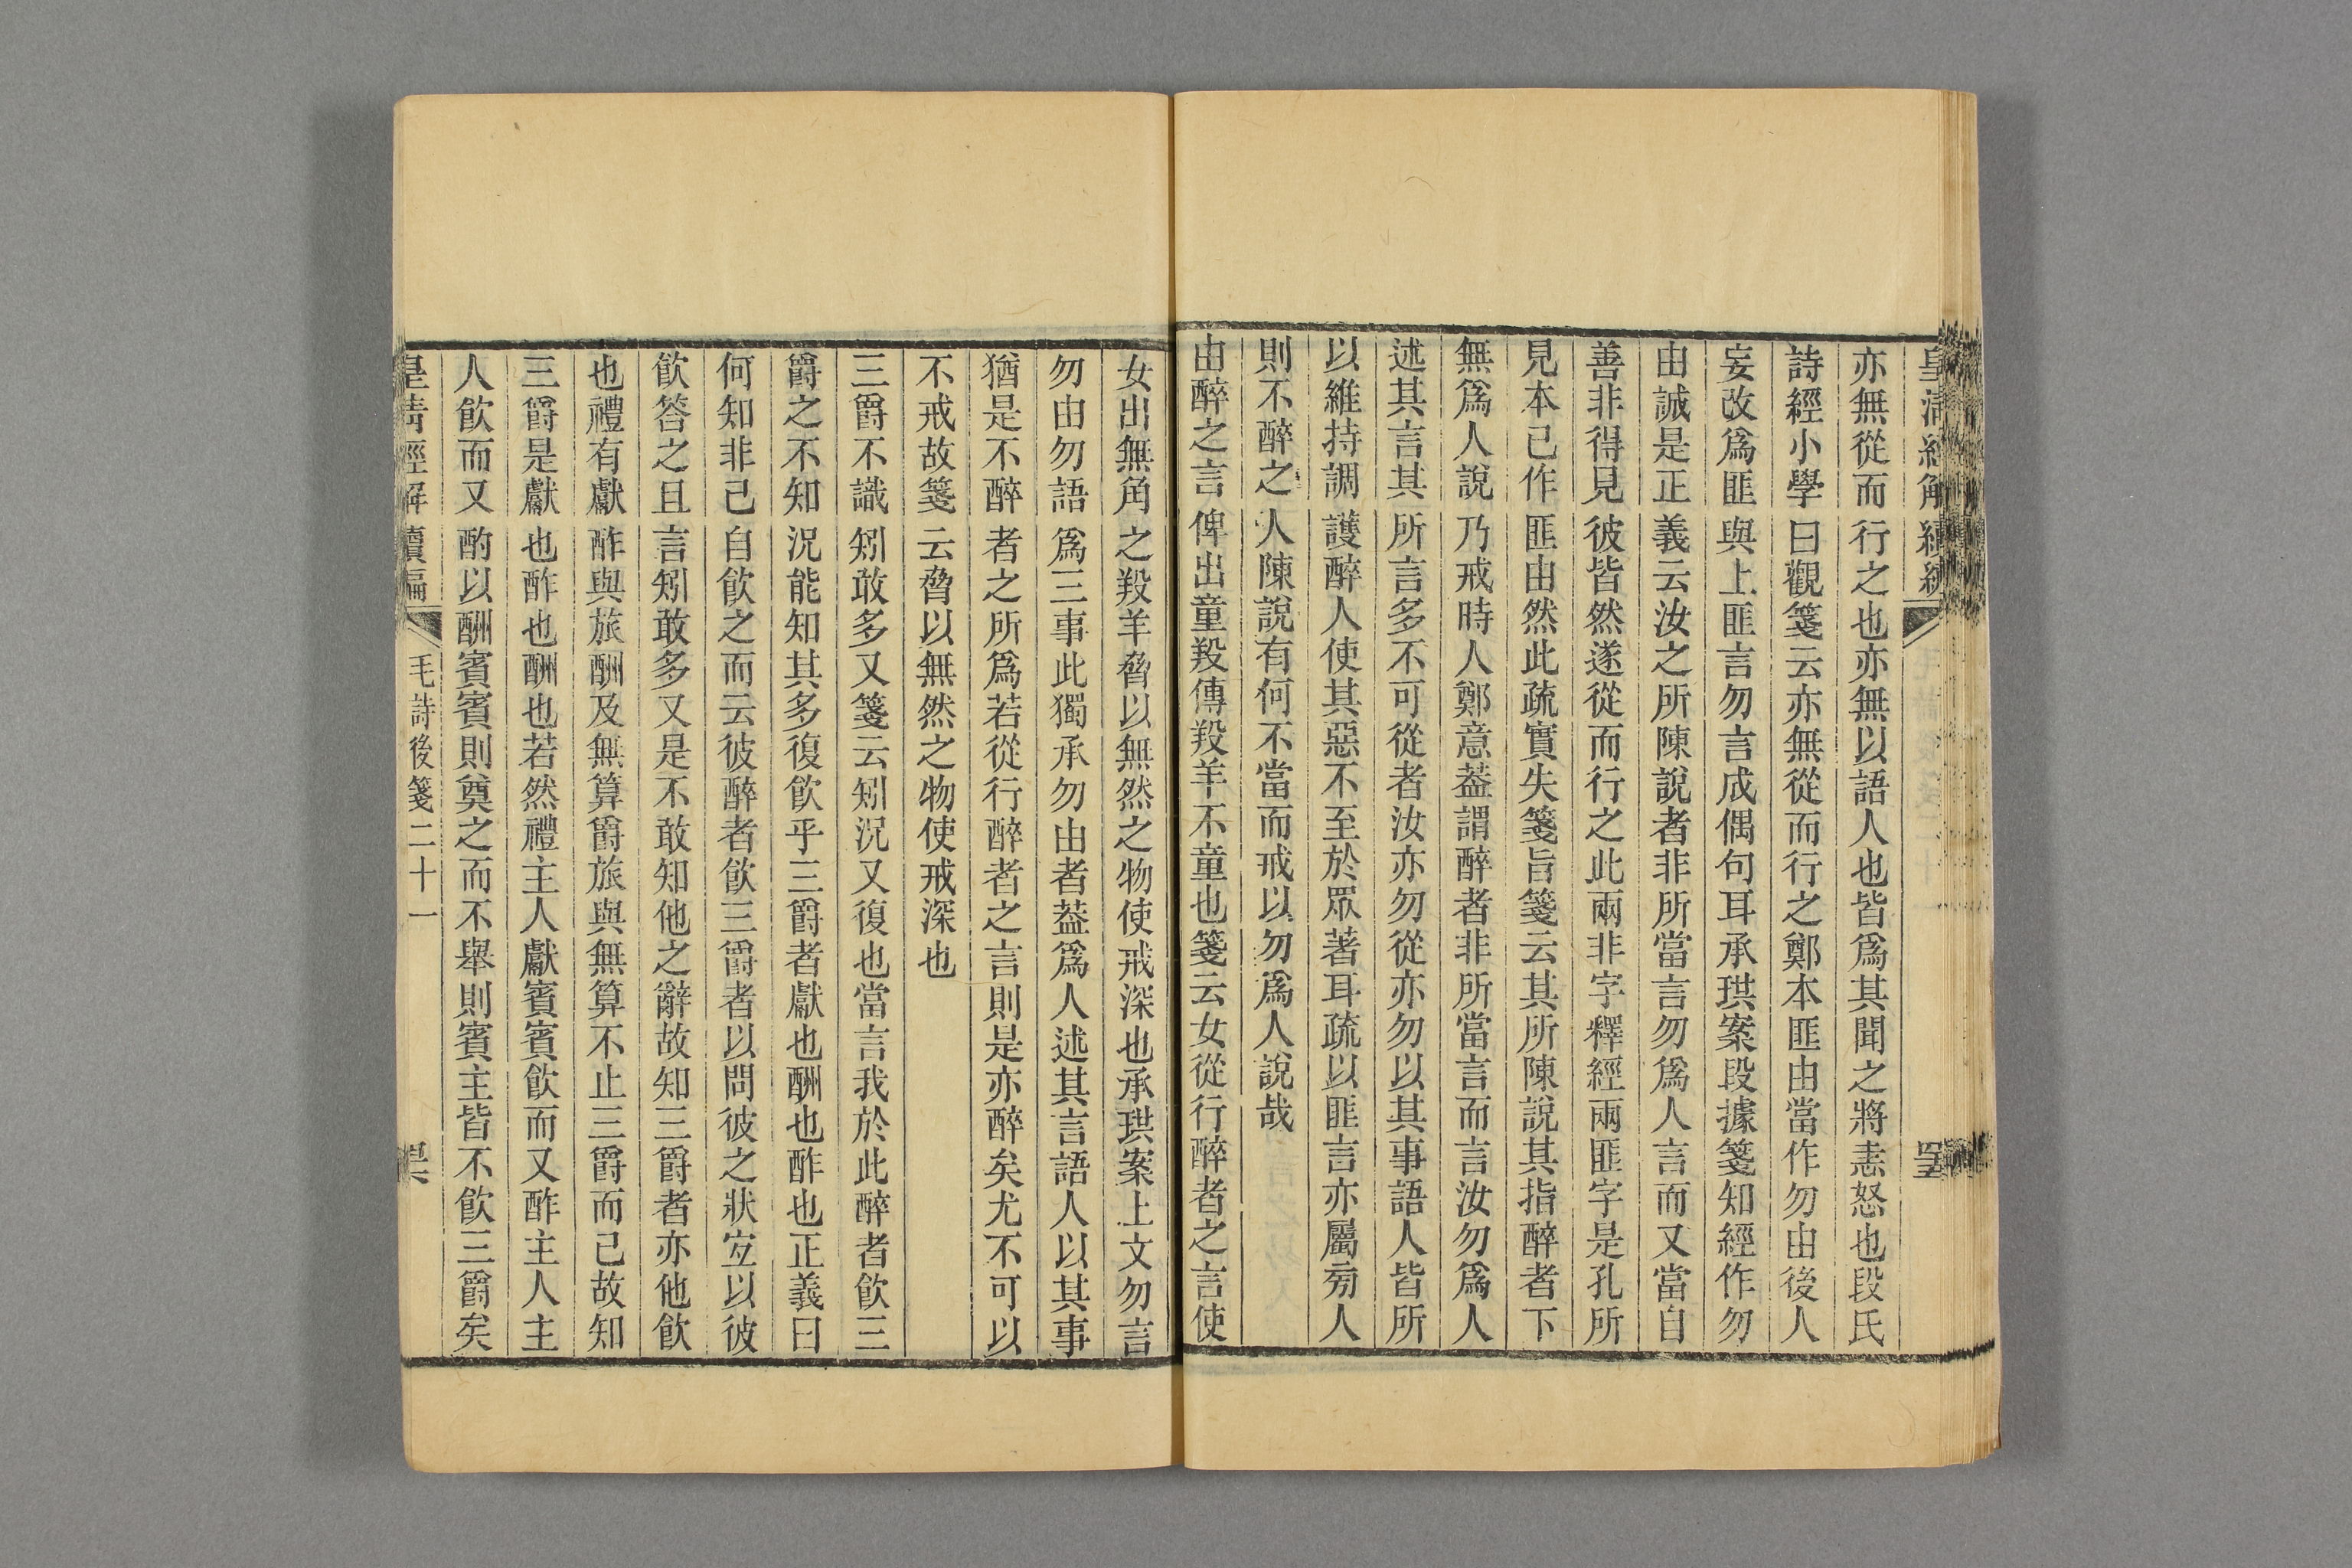 皇清經解續編
亦無從而行之也亦無以語人也皆爲其聞之將恚怒也段氏
詩經小學曰觀箋云亦無從而行之鄭本匪由當作勿由後人
妄改爲匪與上匪言勿言成偶句耳承珙案段據箋知經作勿
由誠是正義云汝之所陳說者非所當言勿爲人言而又當自
善非得見彼皆然遂從而行之此兩非字釋經兩匪字是孔所
見本已作匪由然此疏實失箋旨箋云其所陳說其指醉者下
無爲人說乃戒時人鄭意葢謂醉者非所當言而言汝勿爲人
述其言其所言多不可從者汝亦勿從亦勿以其事語人皆所
以維持調護醉人使其惡不至於眾著耳疏以匪言亦屬旁人
則不醉之人陳說有何不當而戒以勿爲人說哉
由醉之言俾出童羖傳羖羊不童也箋云女從行醉者之言使
女出無角之羖羊脅以無然之物使戒深也承珙案上文勿言
勿由勿語爲三事此獨承勿由者葢爲人述其言語人以其事
猶是不醉者之所爲若從行醉者之言則是亦醉矣尤不可以
不戒故箋云脅以無然之物使戒深也
三爵不識矧敢多又箋云矧況又復也當言我於此醉者飲三
爵之不知況能知其多復飲乎三爵者獻也酬也酢也正義曰
何知非己自飲之而云彼醉者飲三爵者以問彼之狀宐以彼
飲答之且言矧敢多又是不敢知他之辭故知三爵者亦他飲
也禮有獻酢與旅酬及無算爵旅與無算不止三爵而已故知
三爵是獻也酢也酬也若然禮主人獻賓賓飲而又酢主人主
人飲而又酌以酬賓賓則奠之而不舉則賓主皆不飲三爵矣
皇清經解續編 毛詩後箋二十一